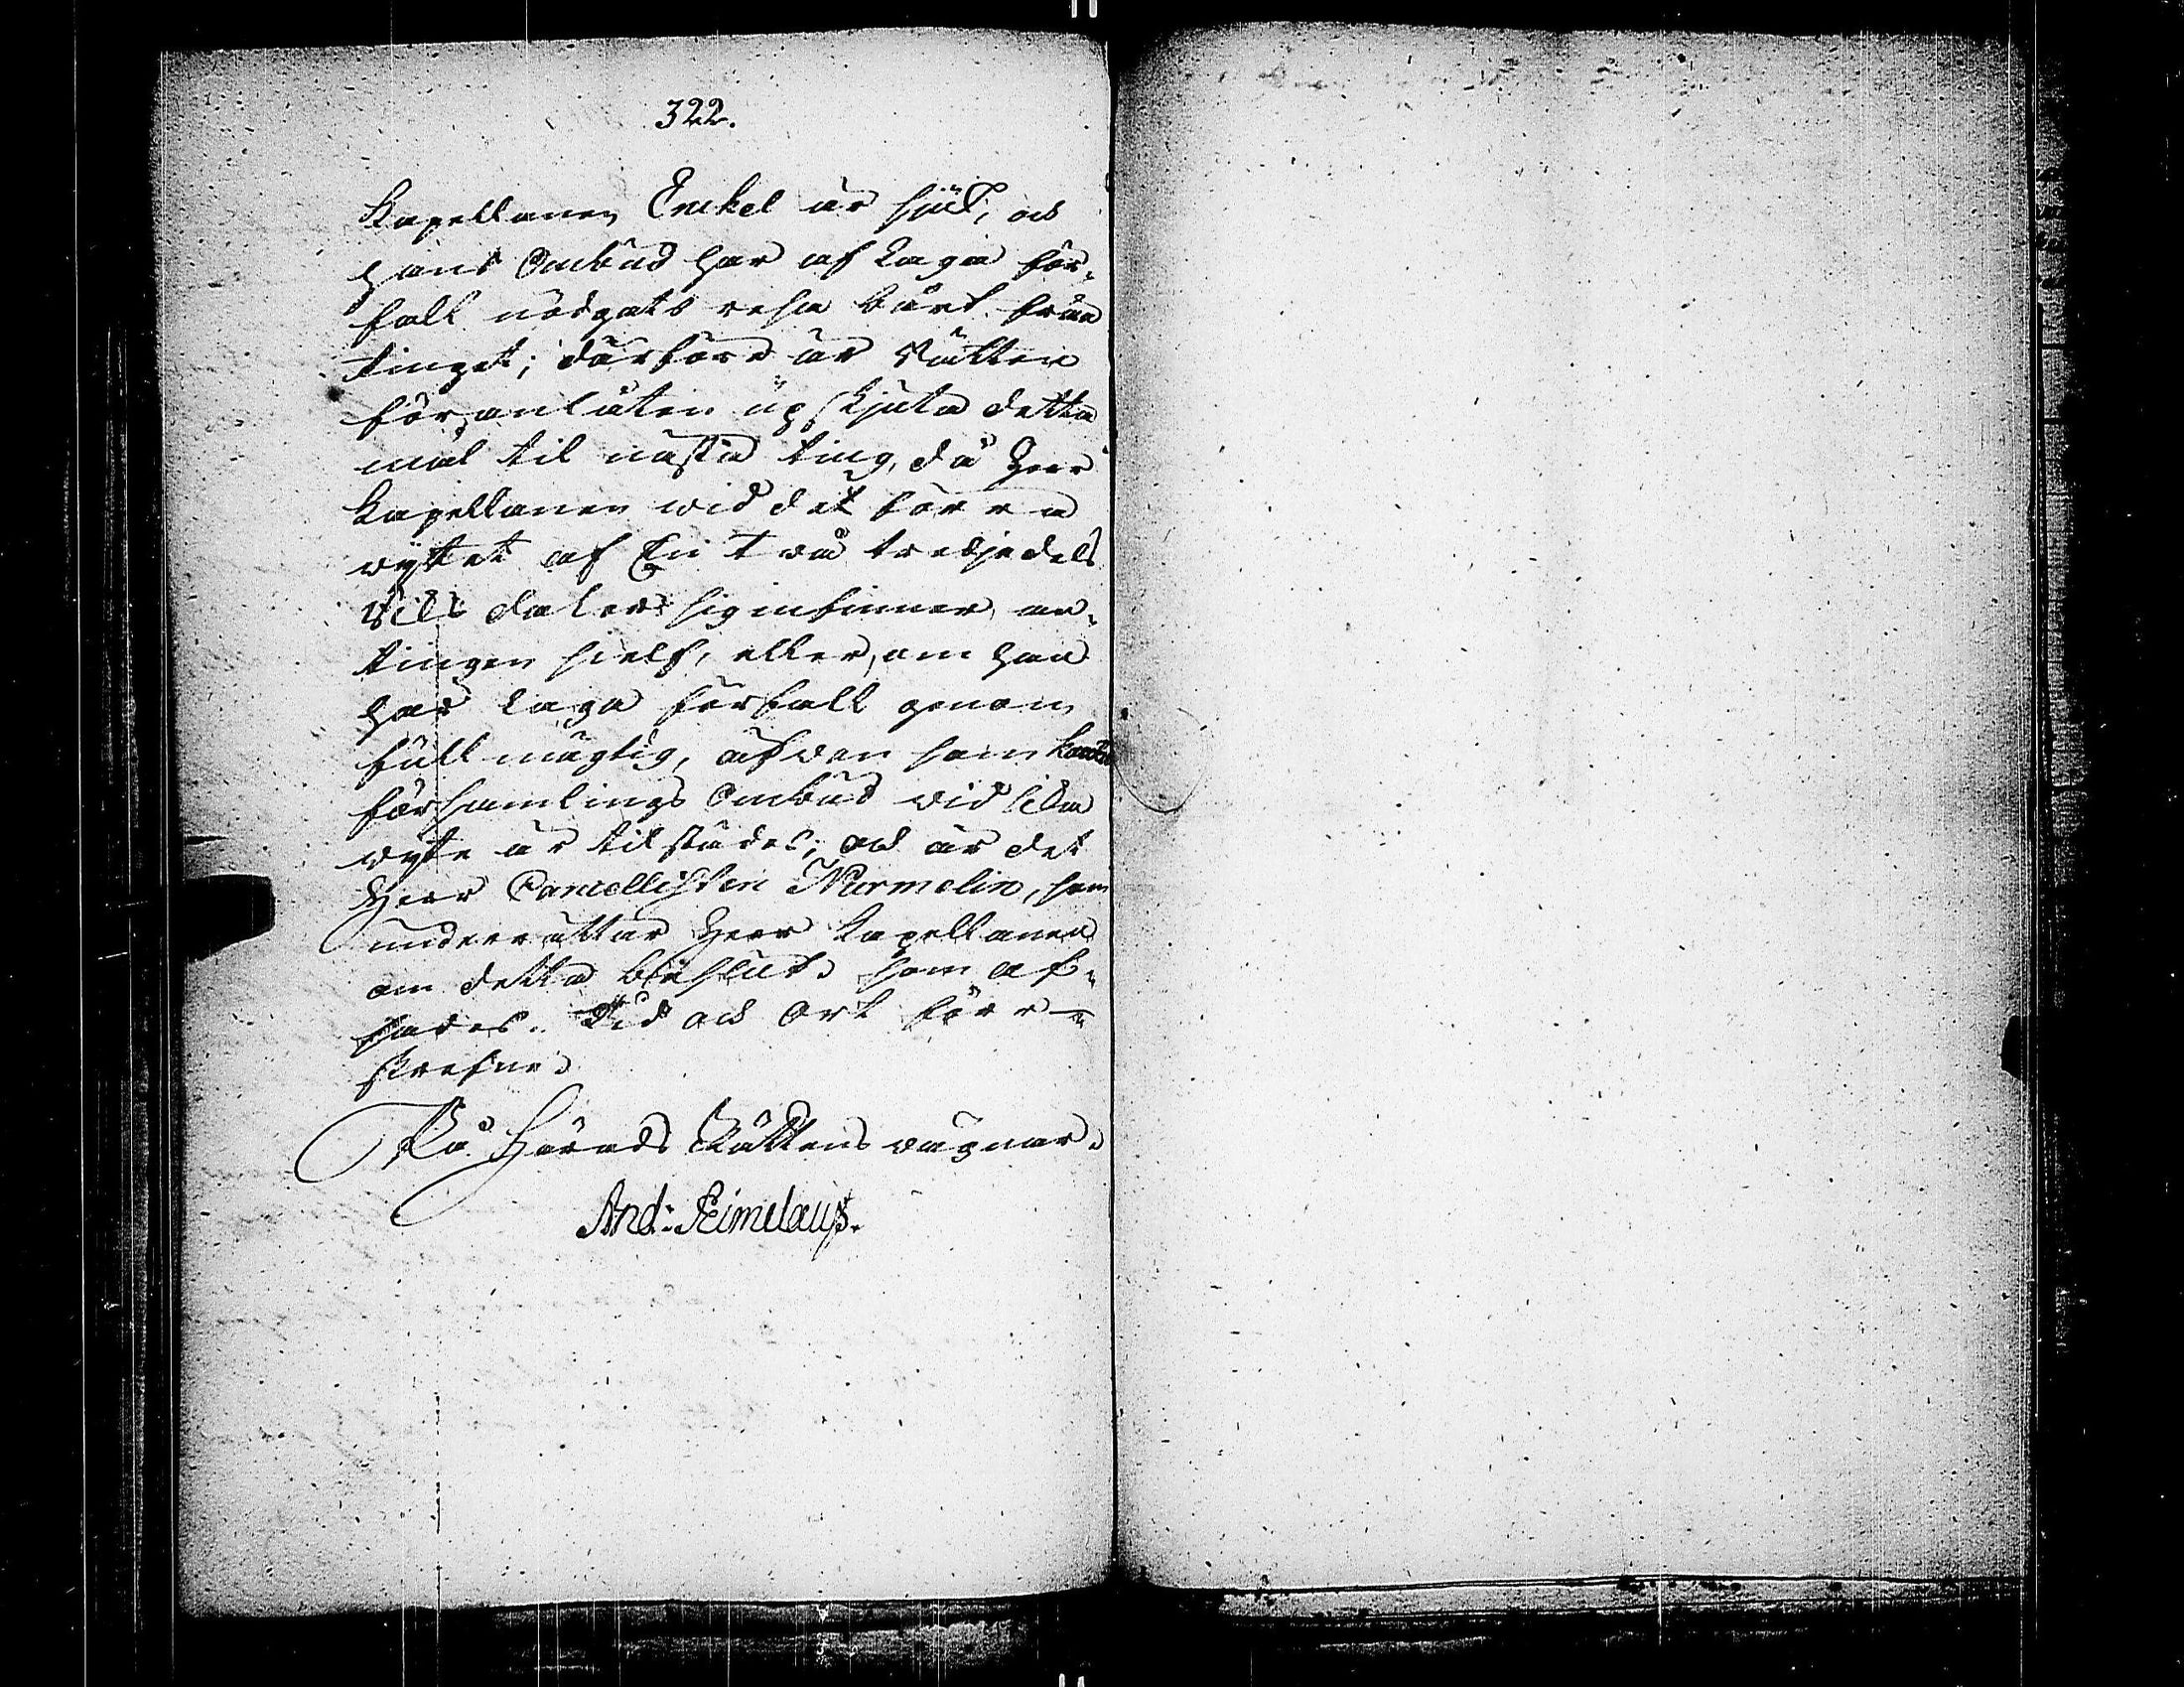 322.
Kapellanen Enckel är sjuk, och
hans Ombud har af laga för-
fall nödgats resa bårt från
tinget; därföre är Rätten
föranlåten upskjuta detta
mål til nästa ting, då Herr
Kapellanen wid det förra
wytet af En två tredjedels
Riks daler sig infinner, an-
tingen sielf, eller, om han
har laga förfall genom
fullmägtig, äfwen som
församlings Ombud wid lika
wyte är tilstädes, och är det
Herr Cancellisten Nurmelin, som
underrättar Herr Kapellanen
om detta beslut. som af-
sades. Tid och Ort förr-
skrefne.
På Härads Rättens wägnar.
And: Reimelaus.